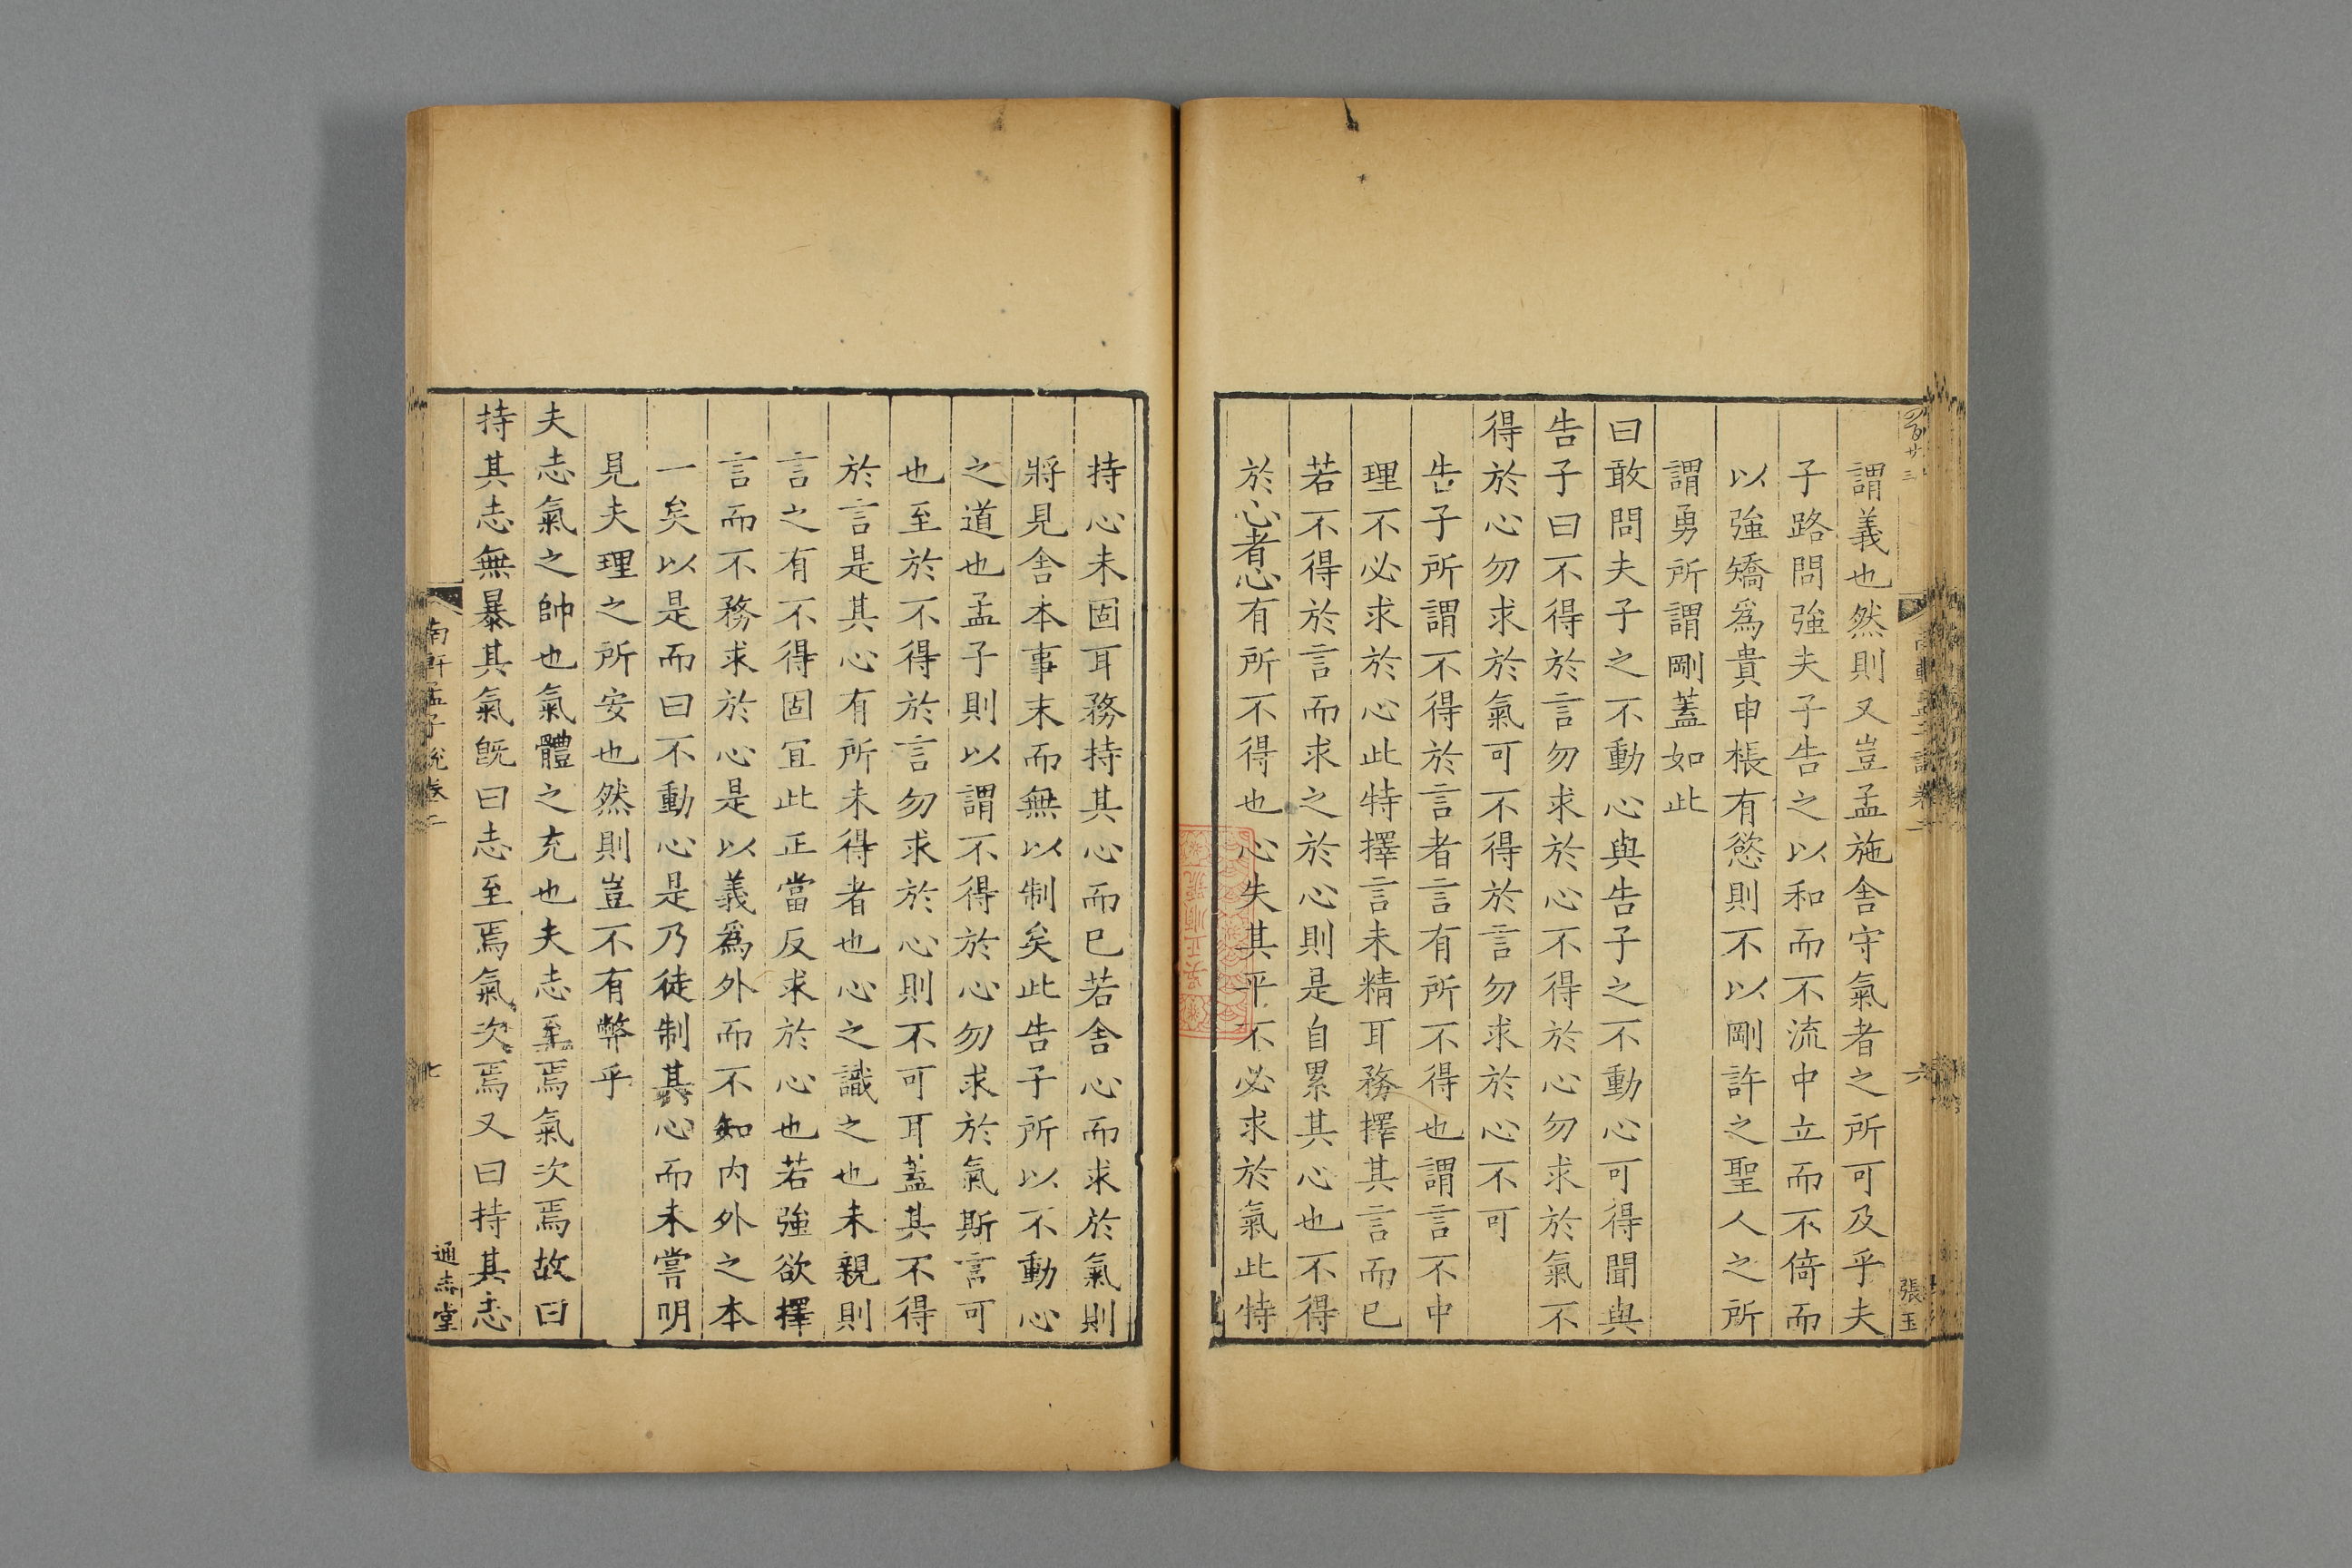 謂義也然則又豈孟施舍守氣者之所可及乎夫
子路問強夫子告之以和而不流中立而不倚而
以強矯爲貴申棖有慾則不以剛許之聖人之所
謂勇所謂剛蓋如此
曰敢問夫子之不動心與告子之不動心可得聞與
告子曰不得於言勿求於心不得於心勿求於氣不
得於心勿求於氣可不得於言勿求於心不可
告子所謂不得於言者言有所不得也謂言不中
理不必求於心此特擇言未精耳務擇其言而已
若不得於言而求之於心則是自累其心也不得
於心者心有所不得也心失其平不必求於氣此特
張玉
六
持心未固耳務持其心而已若舍心而求於氣則
將見舍本事末而無以制矣此告子所以不動心
之道也孟子則以謂不得於心勿求於氣斯言可
也至於不得於言勿求於心則不可耳蓋其不得
於言是其心有所未得者也心之識之也未親則
言之有不得固宜此正當反求於心也若強欲擇
言而不務求於心是以義爲外而不知內外之本
一矣以是而曰不動心是乃徒制其心而未嘗明
見夫理之所安也然則豈不有弊乎
夫志氣之帥也氣體之充也夫志至焉氣次焉故曰
持其志無暴其氣旣曰志至焉氣次焉又曰持其志
南軒孟子說卷二
七
通志堂